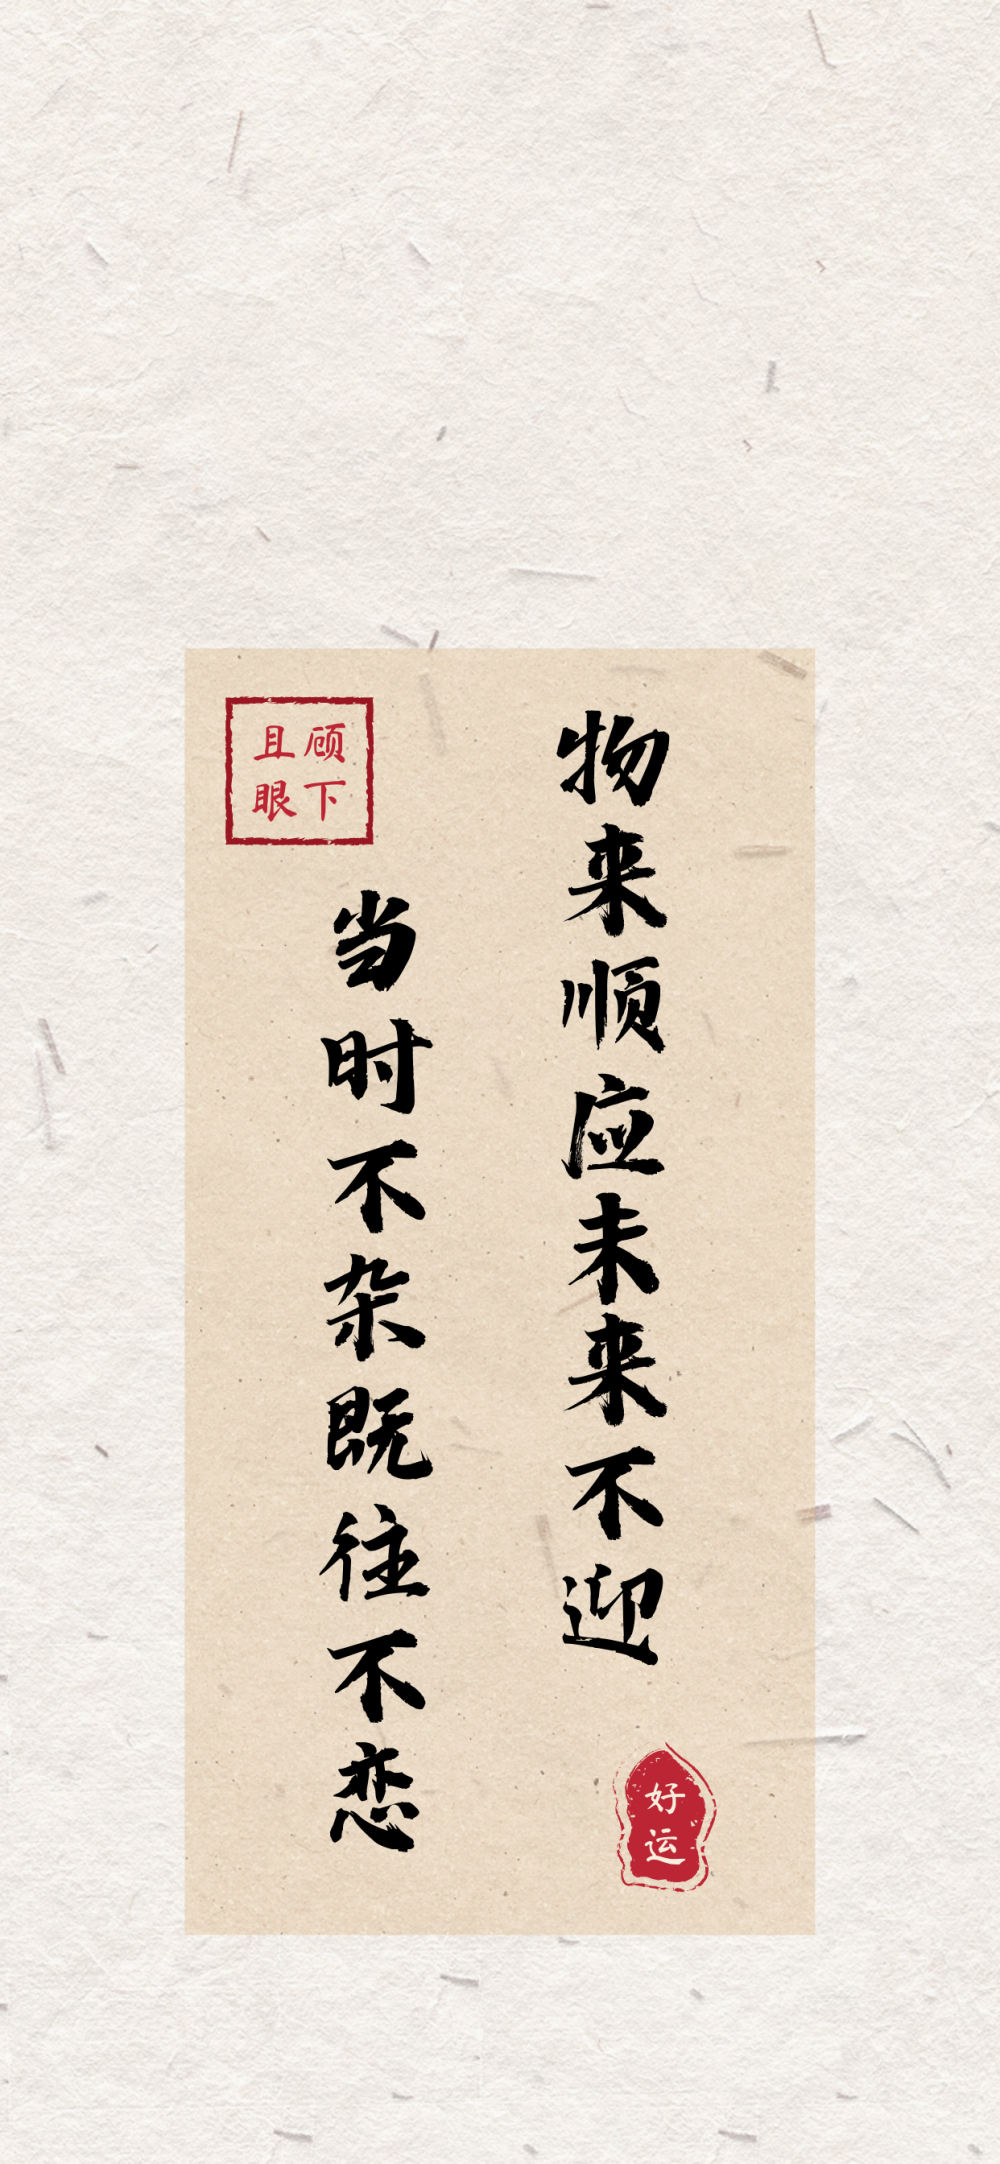 物来顺应未来不迎
当时不杂既往不恋
且顾
眼下
好运